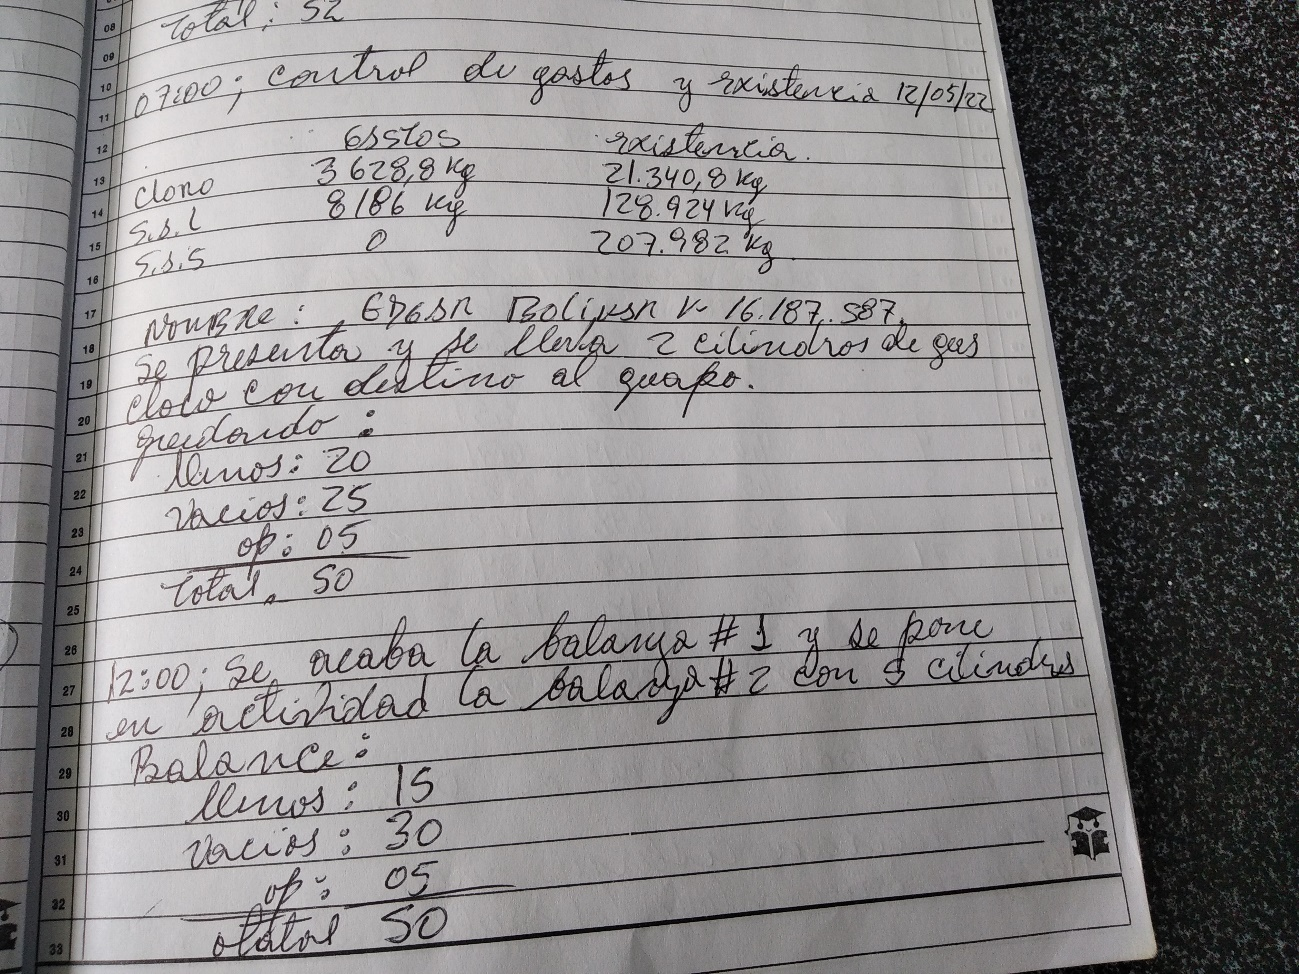 08
Total: 52
09
10
07:00; control de gastos y existencia 12/05/22
11
12
Gastos existencia.
13
cloro 3628,8 Kg 21.340,8 Kg
14
S.s.l 8186 Kg 128.924 Kg
15
S.s.S 0 207.982 Kg
16
17
Nombre: EDGAR Bolivar V- 16.187.587.
18
Se presenta y se lleva 2 cilindros de gas
19
cloro con destino al guapo.
20
quedando:
21
llenos: 20
22
vacios: 25
23
op: 05
24
Total. 50
25
26
12:00; Se acaba la balanza #1 y se pone
27
en actividad la balanza #2 con 5 cilindros
28
Balance:
29
llenos: 15
30
vacios: 30
31
op: 05
32
total 50
33